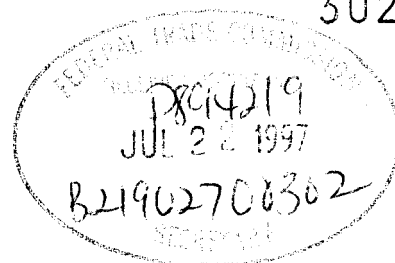 302
FEDERAL TRADE COMMISSION
P894219
JUL 22 1997
B21902700302
SECRETARY